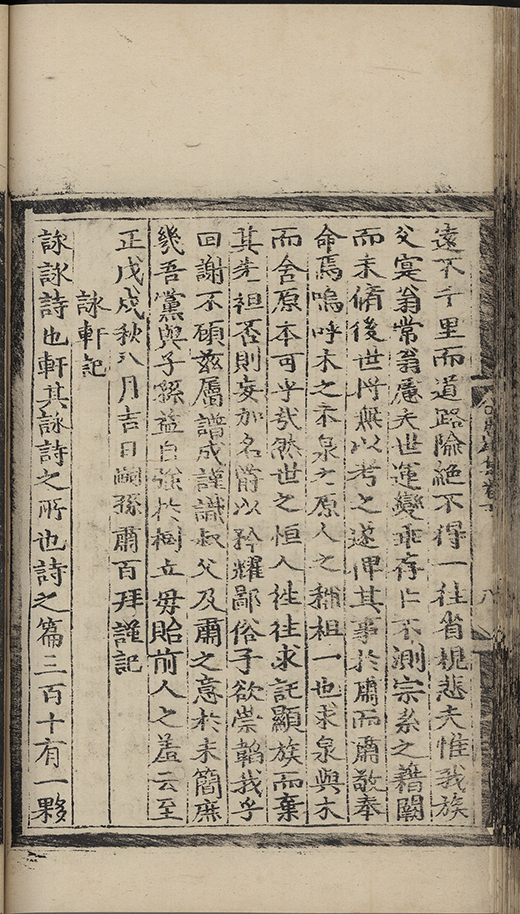 遠不千里而道路隃絶不得一往省視悲夫惟我族
父寔翁常翁慮夫世運變乖存亡不測宗系之藉闕
而未脩後世將無以考之遂俾其事於肅而肅敬奉
命焉嗚呼木之本泉之原人之禰祖一也求泉與木
而舍原本可乎哉然世之恒人徃徃求託顯族而棄
其先祖否則妄加名爵以矜耀鄙俗子欲崇韜我乎
回謝不碩玆厲譜成謹識叔父及肅之意於末簡庶
幾吾黨與子孫益自強於樹立毋貽前人之羞云至
正戊戌秋八月吉日嗣孫肅百拜謹記
詠軒記
詠詠詩也軒其詠詩之所也詩之篇三百十有一夥
八